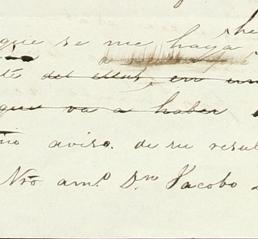 he
que se me haya
a
del ellas, en un
que va a haber
mo aviso. de su resul
Nro am.º D.n Jacobo